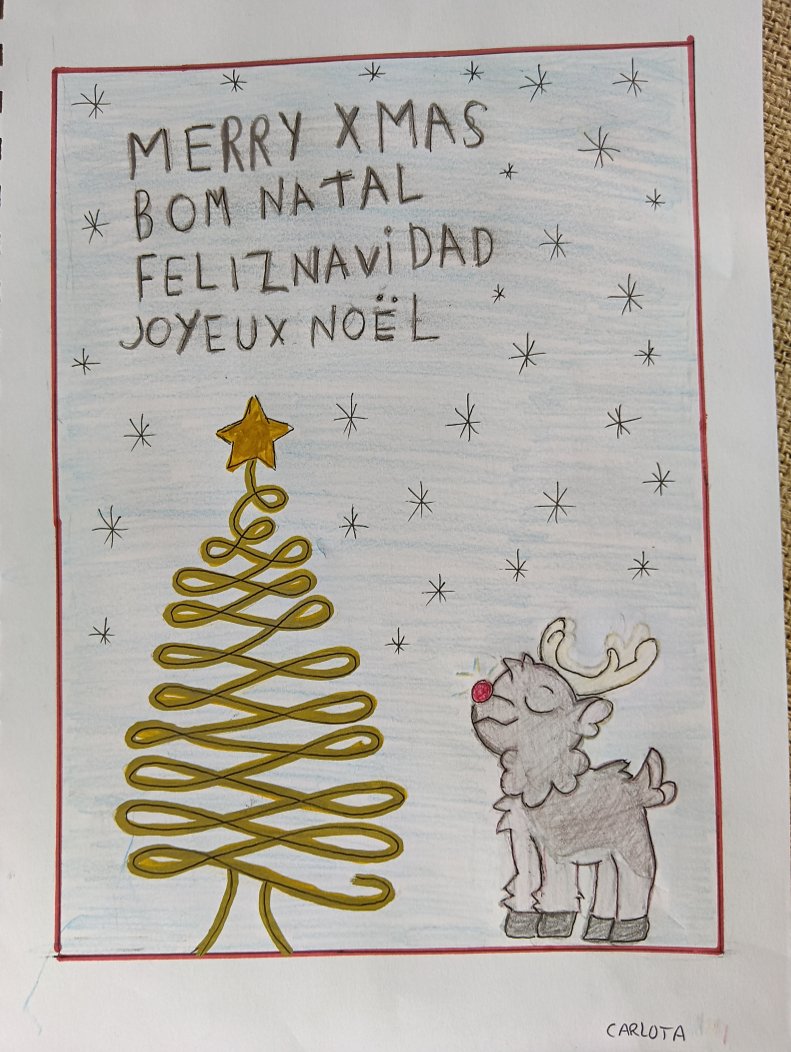 MERRY XMAS
BOM NATAL
FELIZNAViDAD
JOYEUX NOËL
CARLOTA